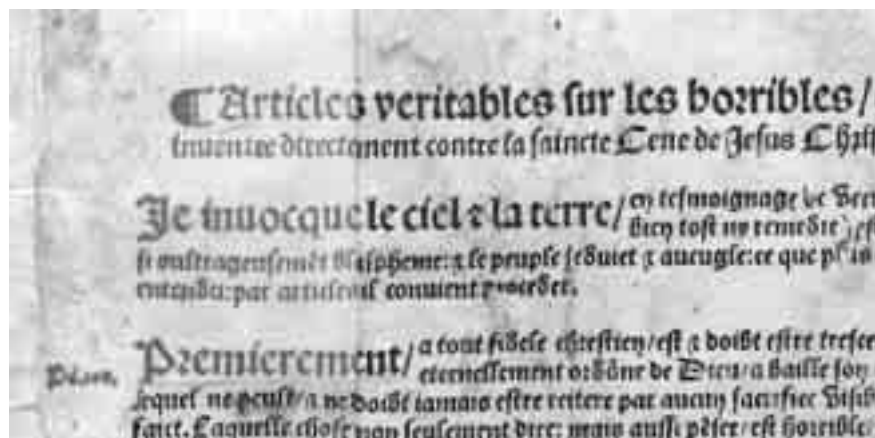 ¶ Articles veritables sur les horribles /
inuentee directement contre la saincte Cene de Jesus Chris
Je inuocque le ciel & la terre / en tesmoignage de
bien tost ne remedie
si oultrageusemēt blaspheme: & le peuple seduict & aueugle: ce que
entendu: par articles il conuient proceder.
Premierement / a tout fidele chrestien / est & doibt estre
eternellement ordōne de Dieu / a baille son
lequel ne peust / a ne doibt iamais estre reitere par aucun sacrifice
faict. Laquelle chose non seulement dire: mais aussi pēser / est horrible